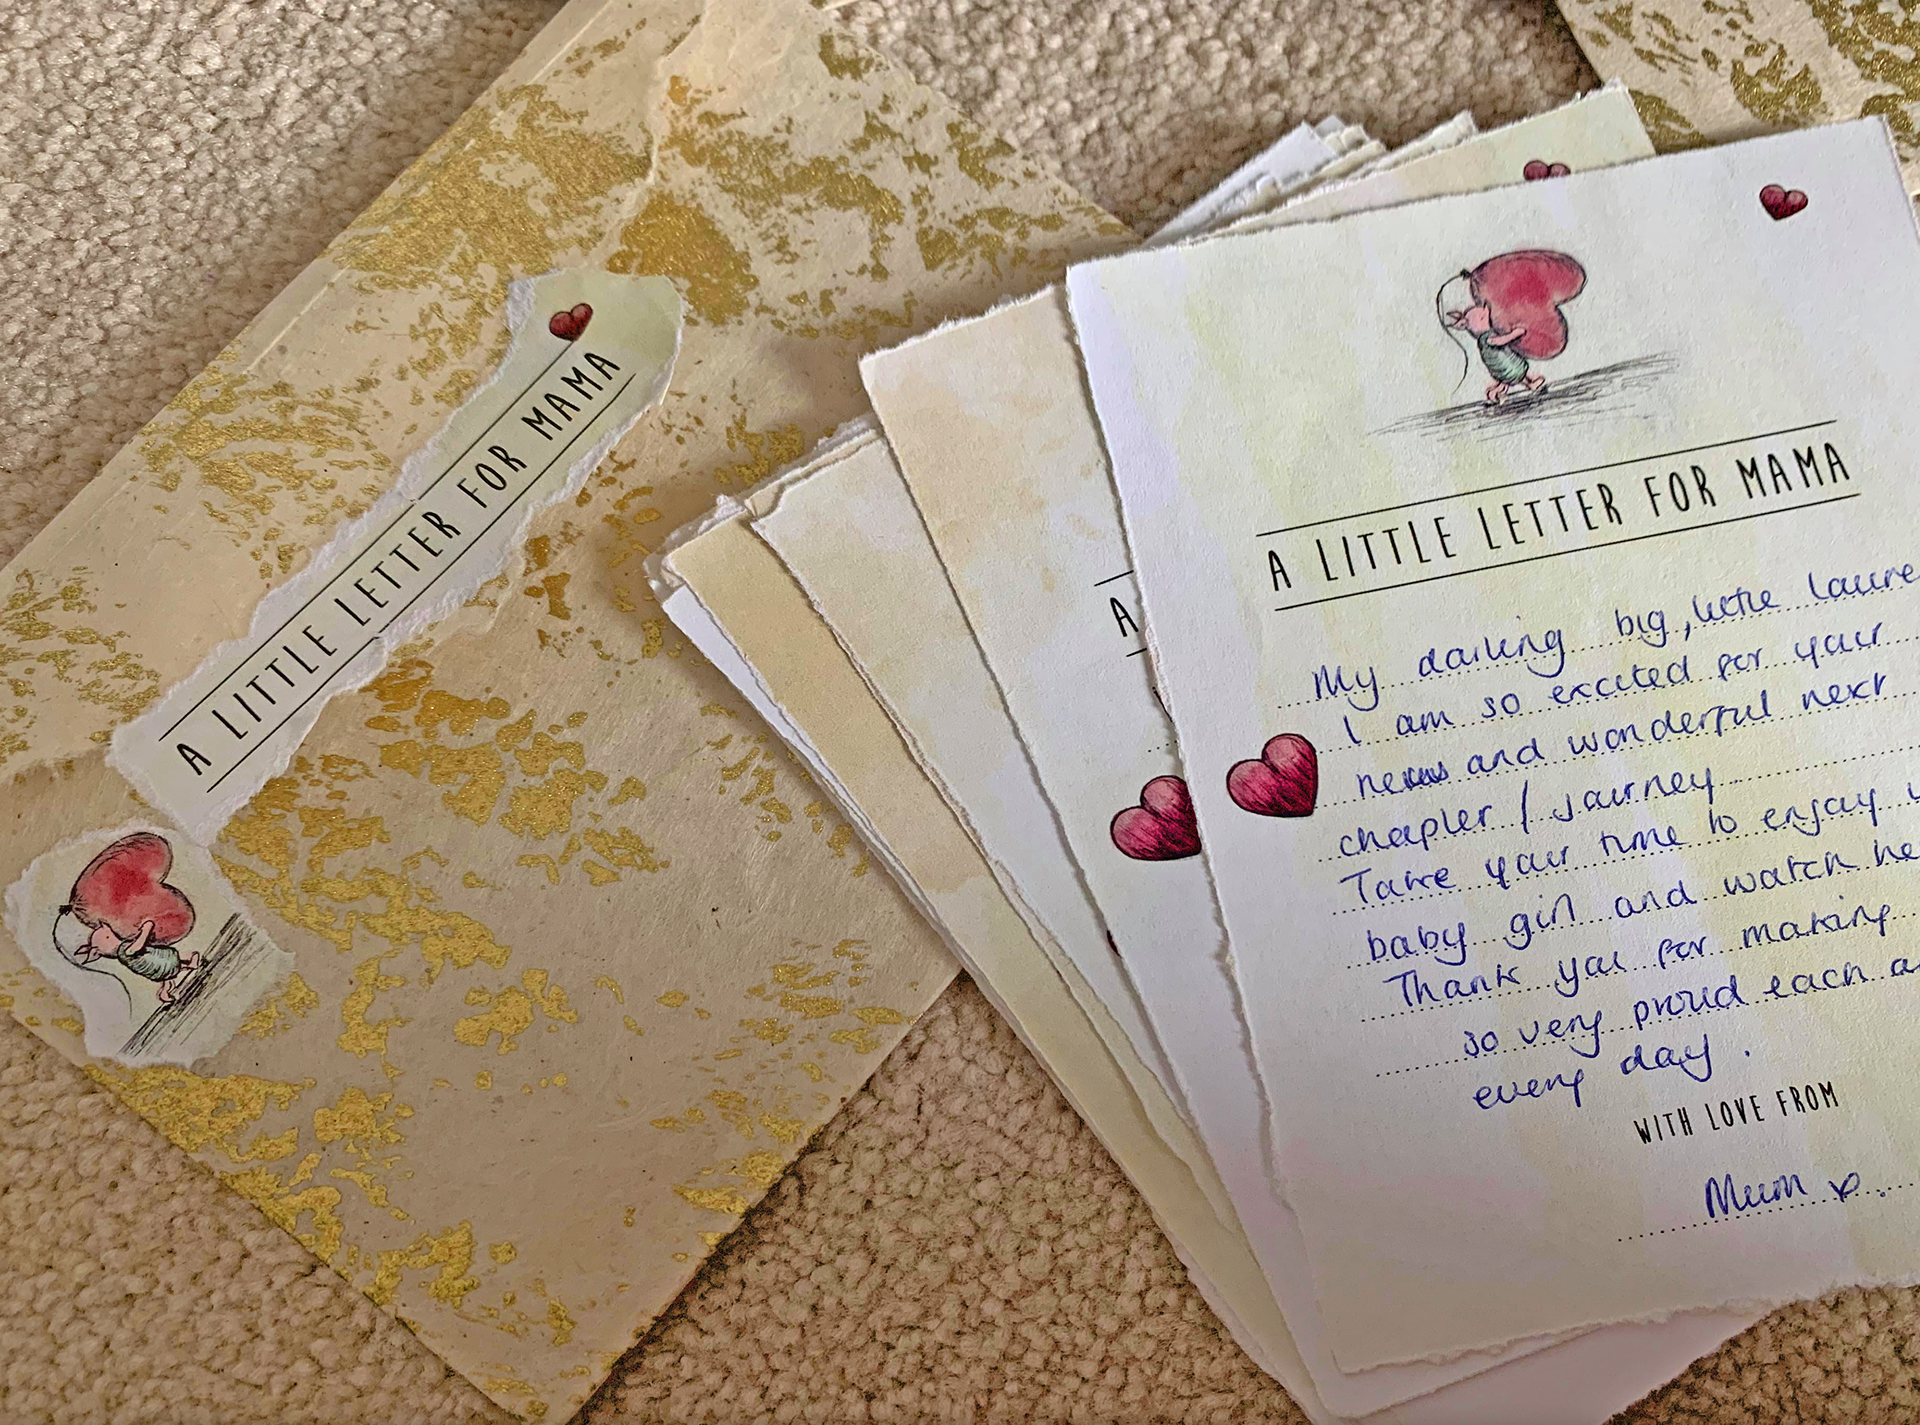 A LITTLE LETTER FOR MAMA
A LITTLE LETTER FOR MAMA
A
My darling big, little Laure
I am so excited for your
new and wonderful next
chapter / journey
Take your time to enjoy y
baby girl and watch he
Thank you for making
so very proud each a
every day.
WITH LOVE FROM
Mum